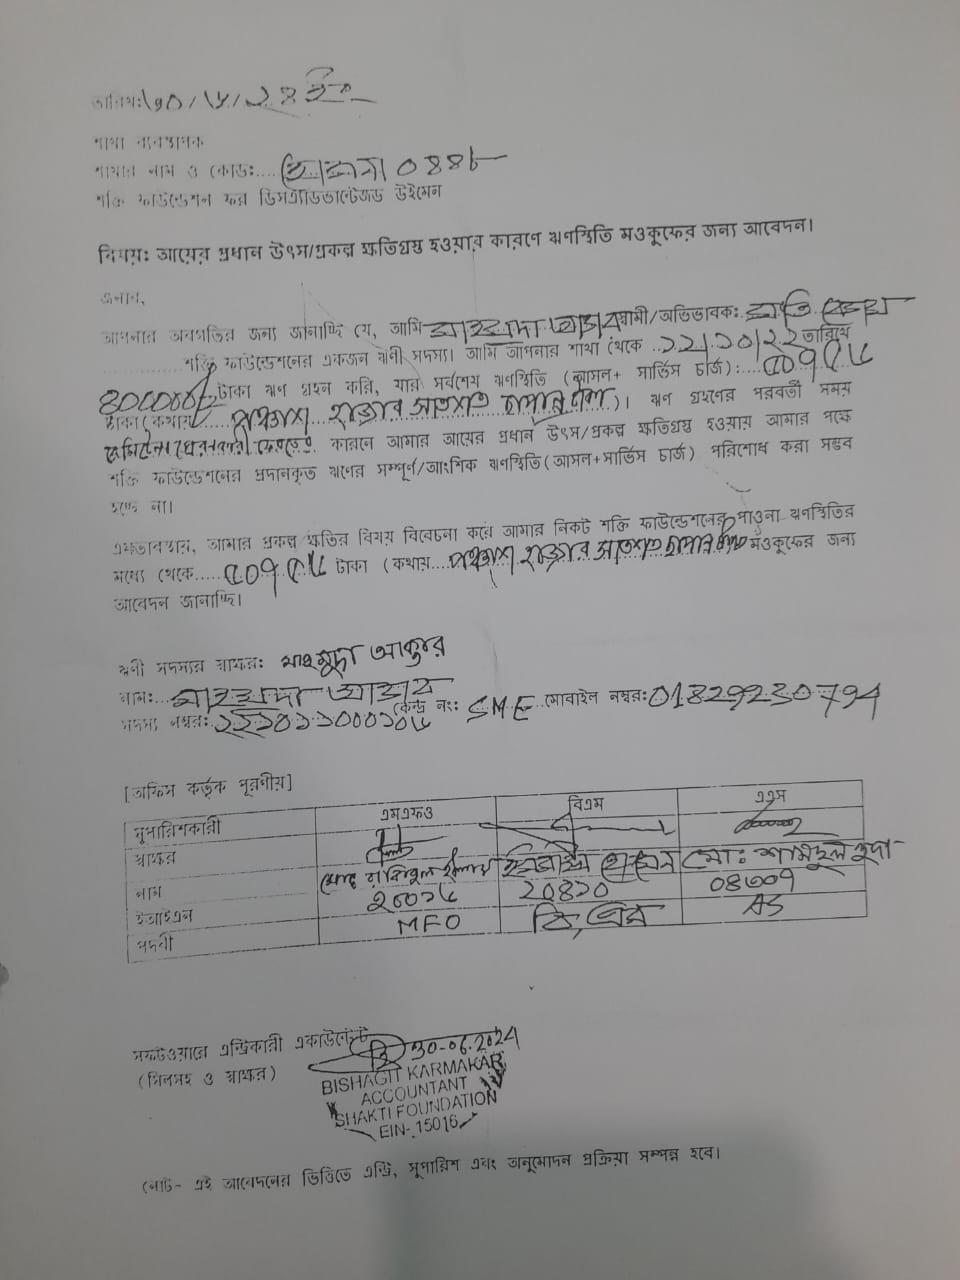 তারিখঃ ৩০/৬/২৪ ইং
শাখা ব্যবস্থাপক
শাখার নাম ও কোডঃ.... ০৪৪৮
শক্তি ফাউন্ডেশন ফর ডিসএ্যাডভান্টেজড উইমেন
বিষয়ঃ আয়ের প্রধান উৎস/প্রকল্প ক্ষতিগ্রস্ত হওয়ার কারণে ঋণস্থিতি মওকুফের জন্য আবেদন।
জনাব,
আপনার অবগতির জন্য জানাচ্ছি যে, আমি মাহমুদা আক্তার স্বামী/অভিভাবকঃ
শক্তি ফাউন্ডেশনের একজন ঋণী সদস্য। আমি আপনার শাখা থেকে ..১২/১০/২২ তারিখে
৪০০০০০/= টাকা ঋণ গ্রহন করি, যার সর্বশেষ ঋণস্থিতি (আসল+ সার্ভিস চার্জ):.... ৫০৭৫৬
টাকা (কথায় পঞ্চাশ হাজার সাতশত ছাপ্পান্ন টাকা)। ঋণ গ্রহণের পরবর্তী সময়
কারনে আমার আয়ের প্রধান উৎস/প্রকল্প ক্ষতিগ্রস্ত হওয়ায় আমার পক্ষে
শক্তি ফাউন্ডেশনের প্রদানকৃত ঋণের সম্পূর্ণ/আংশিক ঋণস্থিতি(আসল+সার্ভিস চার্জ) পরিশোধ করা সম্ভব
হচ্ছে না।
এমতাবস্থায়, আমার প্রকল্প ক্ষতির বিষয় বিবেচনা করে আমার নিকট শক্তি ফাউন্ডেশনের পাওনা ঋণস্থিতির
মধ্যে থেকে..... ৫০৭৫৬ টাকা (কথায়... পঞ্চাশ হাজার সাতশত ছাপ্পান্ন টাকা মওকুফের জন্য
আবেদন জানাচ্ছি।
ঋণী সদস্যর স্বাক্ষরঃ মাহমুদা আক্তার
নাম: মাহমুদা আক্তার
সদস্য নম্বরঃ ২২১০১১০০০১০৬ কেন্দ্র নং: SME মোবাইল নম্বরঃ 01829230794
[অফিস কর্তৃক পূরণীয়]
সুপারিশকারী এমএফও বিএম এএস
স্বাক্ষর
নাম মোঃ মোঃ শামছুল হুদা
ইআইএন ২০০১৬ ২০৪১০ ০৪৩০৭
পদবী MFO বি, এম AS
সফটওয়ারে এন্ট্রিকারী একাউন্টেন্ট 30-06.2024
(সিলসহ ও স্বাক্ষর)
BISHAGIT KARMAKAR
ACCOUNTANT
SHAKTI FOUNDATION
EIN- 15016
নোট- এই আবেদনের ভিত্তিতে এন্ট্রি, সুপারিশ এবং অনুমোদন প্রক্রিয়া সম্পন্ন হবে।